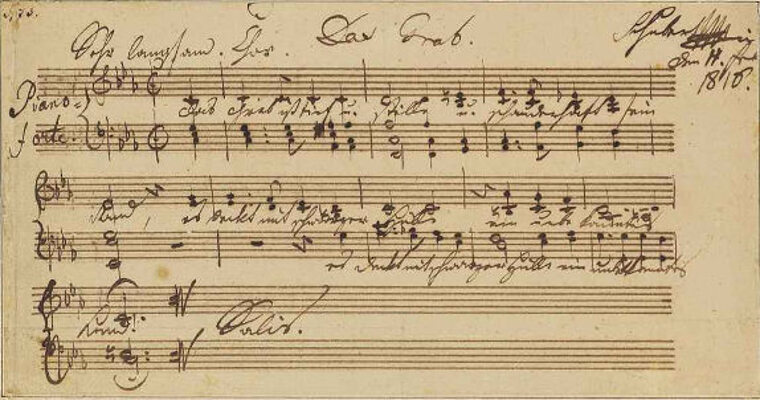 Sehr langsam. Chor. Das Grab. Schubert
den 11.
1816.
Piano-
forte.
Das Grab ist tief u. stille u. schauderhaft sein
Rand, es deckt mit schwarzer Hülle ein unbekanntes
es deckt mit schwarzer Hülle ein unbekanntes
Land! Salis.